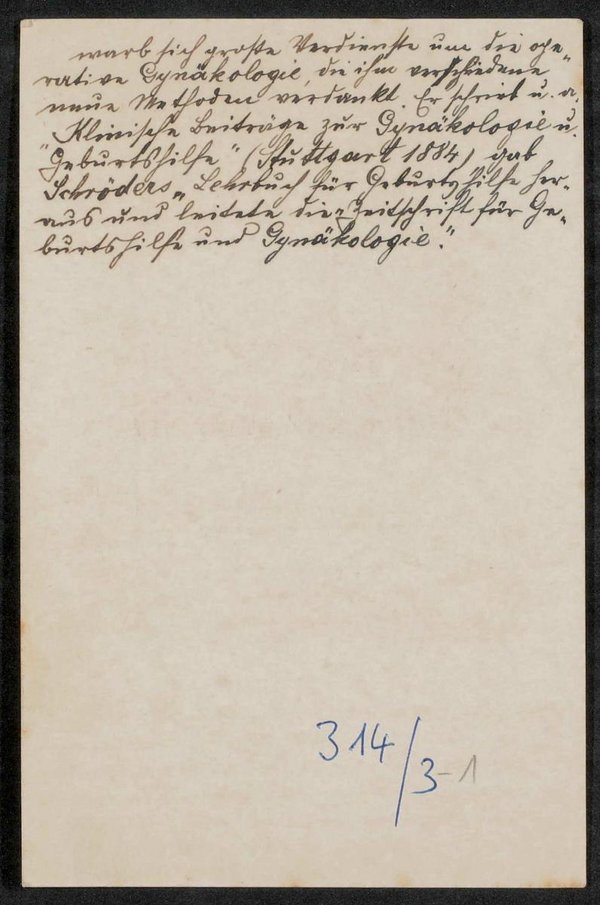 warb sich große Verdienste um die ope-
rative Gynäkologie, die ihm verschiedene
neue Methoden verdankt. Er schrieb u. a.
„Klinische Beiträge zur Gynäkologie u.
Geburtshilfe" (Stuttgart 1884), gab
Schröders „Lehrbuch für Geburtshilfe her-
aus und leitete die „Zeitschrift für Ge-
burtshilfe und Gynäkologie."
314/3-1